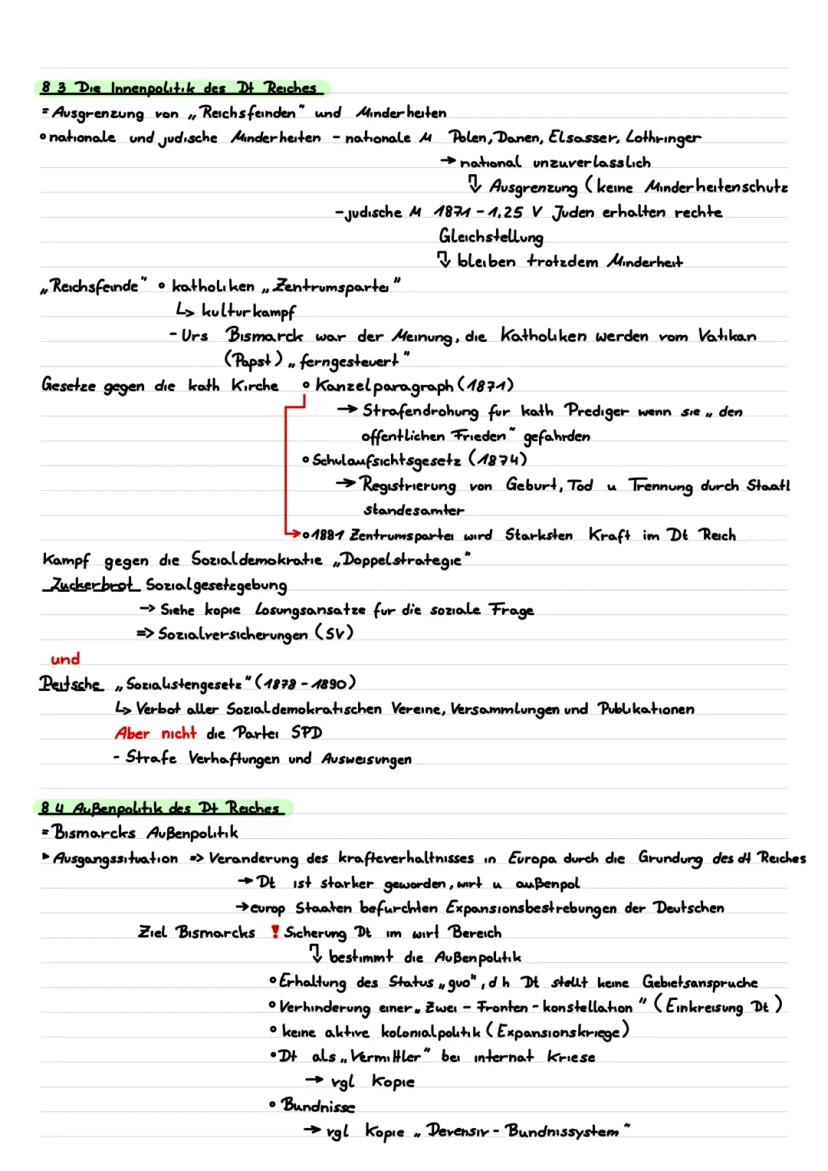 8 3 Die Innenpolitik des Dt Reiches
= Ausgrenzung von „Reichsfeinden" und Minderheiten
° nationale und judische Minderheiten - nationale M Polen, Danen, Elsasser, Lothringer
→ national unzuverlasslich
⇓ Ausgrenzung (keine Minderheitenschutz
- judische M 1871 - 1,25 V Juden erhalten rechte
Gleichstellung
⇓ bleiben trotzdem Minderheit
„Reichsfeinde" ° katholiken „Zentrumspartei"
↳ kulturkampf
- Urs Bismarck war der Meinung, die Katholiken werden vom Vatikan
(Papst) „ferngesteuert"
Gesetze gegen die kath Kirche ° Kanzelparagraph (1871)
→ Strafendrohung fur kath Prediger wenn sie „den
offentlichen Frieden" gefahrden
° Schulaufsichtsgesetz (1874)
→ Registrierung von Geburt, Tod u Trennung durch Staatl
standesamter
→ ° 1881 Zentrumspartei wird Starksten Kraft im Dt Reich
Kampf gegen die Sozialdemokratie „Doppelstrategie"
Zuckerbrot Sozialgesetzgebung
→ Siehe kopie Losungsansatze fur die soziale Frage
=> Sozialversicherungen (SV)
und
Peitsche „Sozialistengesetz" (1878 - 1890)
↳ Verbot aller Sozialdemokratischen Vereine, Versammlungen und Publikationen
Aber nicht die Partei SPD
- Strafe Verhaftungen und Ausweisungen
8 4 Außenpolitik des Dt Reiches
= Bismarcks Außenpolitik
▸ Ausgangssituation => Veranderung des krafteverhaltnisses in Europa durch die Grundung des dt Reiches
→ Dt ist starker geworden, wirt u außenpol
→ europ Staaten befurchten Expansionsbestrebungen der Deutschen
Ziel Bismarcks ! Sicherung Dt im wirt Bereich
⇓ bestimmt die Außenpolitik
° Erhaltung des Status „guo", d h Dt stellt keine Gebietsanspruche
° Verhinderung einer „Zwei - Fronten - konstellation" (Einkreisung Dt)
° keine aktive kolonialpolitik (Expansionskriege)
• Dt als „Vermittler" bei internat Kriese
→ vgl Kopie
° Bundnisse
→ vgl Kopie „Devensiv - Bundnissystem"